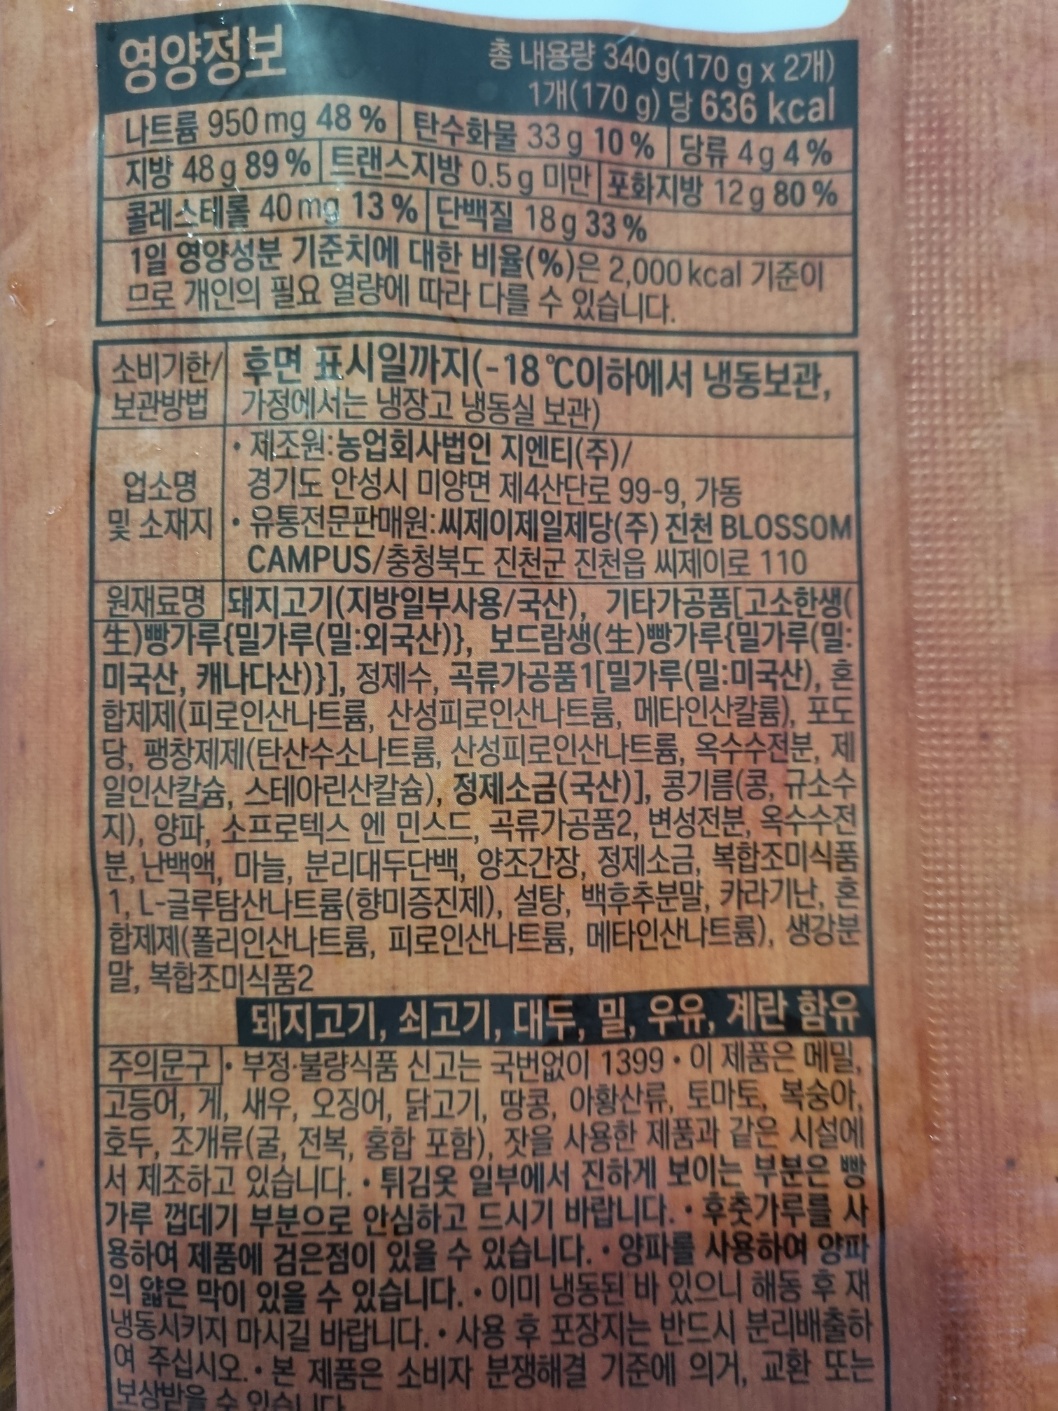 영양정보
총 내용량 340 g(170 g x 2개)
1개(170 g) 당 636 kcal
나트륨 950 mg 48 % 탄수화물 33 g 10 % 당류 4 g 4 %
지방 48 g 89 % 트랜스지방 0.5 g 미만 포화지방 12 g 80 %
콜레스테롤 40 mg 13 % 단백질 18 g 33 %
1일 영양성분 기준치에 대한 비율(%)은 2,000 kcal 기준이
므로 개인의 필요 열량에 따라 다를 수 있습니다.
소비기한/ 후면 표시일까지(-18 ℃이하에서 냉동보관,
보관방법 가정에서는 냉장고 냉동실 보관)
• 제조원:농업회사법인 지엔티(주)/
업소명 경기도 안성시 미양면 제4산단로 99-9, 가동
및 소재지 • 유통전문판매원:씨제이제일제당(주) 진천 BLOSSOM
CAMPUS/충청북도 진천군 진천읍 씨제이로 110
원재료명 돼지고기(지방일부사용/국산), 기타가공품[고소한생(
生)빵가루{밀가루(밀:외국산)}, 보드람생(生)빵가루{밀가루(밀:
미국산, 캐나다산)}], 정제수, 곡류가공품1[밀가루(밀:미국산), 혼
합제제(피로인산나트륨, 산성피로인산나트륨, 메타인산칼륨), 포도
당, 팽창제제(탄산수소나트륨, 산성피로인산나트륨, 옥수수전분, 제
일인산칼슘, 스테아린산칼슘), 정제소금(국산)], 콩기름(콩, 규소수
지), 양파, 소프로텍스 엔 민스드, 곡류가공품2, 변성전분, 옥수수전
분, 난백액, 마늘, 분리대두단백, 양조간장, 정제소금, 복합조미식품
1, L-글루탐산나트륨(향미증진제), 설탕, 백후추분말, 카라기난, 혼
합제제(폴리인산나트륨, 피로인산나트륨, 메타인산나트륨), 생강분
말, 복합조미식품2
돼지고기, 쇠고기, 대두, 밀, 우유, 계란 함유
주의문구 • 부정·불량식품 신고는 국번없이 1399 • 이 제품은 메밀,
고등어, 게, 새우, 오징어, 닭고기, 땅콩, 아황산류, 토마토, 복숭아,
호두, 조개류(굴, 전복, 홍합 포함), 잣을 사용한 제품과 같은 시설에
서 제조하고 있습니다. • 튀김옷 일부에서 진하게 보이는 부분은 빵
가루 껍데기 부분으로 안심하고 드시기 바랍니다. • 후춧가루를 사
용하여 제품에 검은점이 있을 수 있습니다. • 양파를 사용하여 양파
의 얇은 막이 있을 수 있습니다. • 이미 냉동된 바 있으니 해동 후 재
냉동시키지 마시길 바랍니다. • 사용 후 포장지는 반드시 분리배출하
여 주십시오. • 본 제품은 소비자 분쟁해결 기준에 의거, 교환 또는
보상받을 수 있습니다